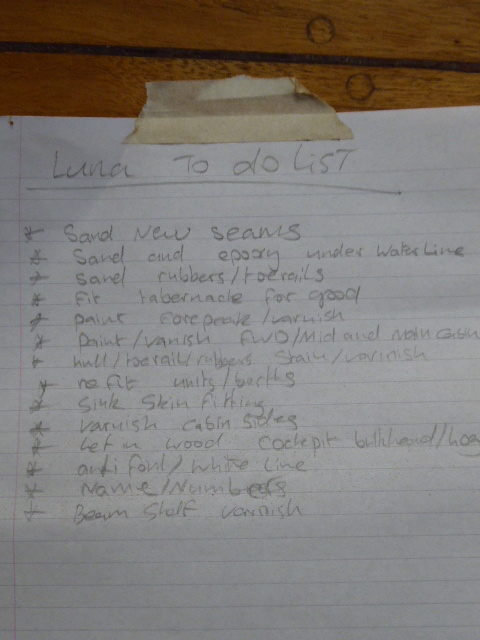 Luna To do List
* Sand New seams
* Sand and epoxy under waterline
* sand rubbers/toerails
* Fit tabernacle for good
* paint forepeak/varnish
* Paint/vanish FWD/Mid and main cabin
* hull/toerail/rubbers stain/varnish
* refit units/berths
* Sink Skin fitting
* varnish cabin sides
* Let in wood cockpit bulkhead/hog
* antifoul/white line
* Name/Numbers
* Beam Shelf varnish